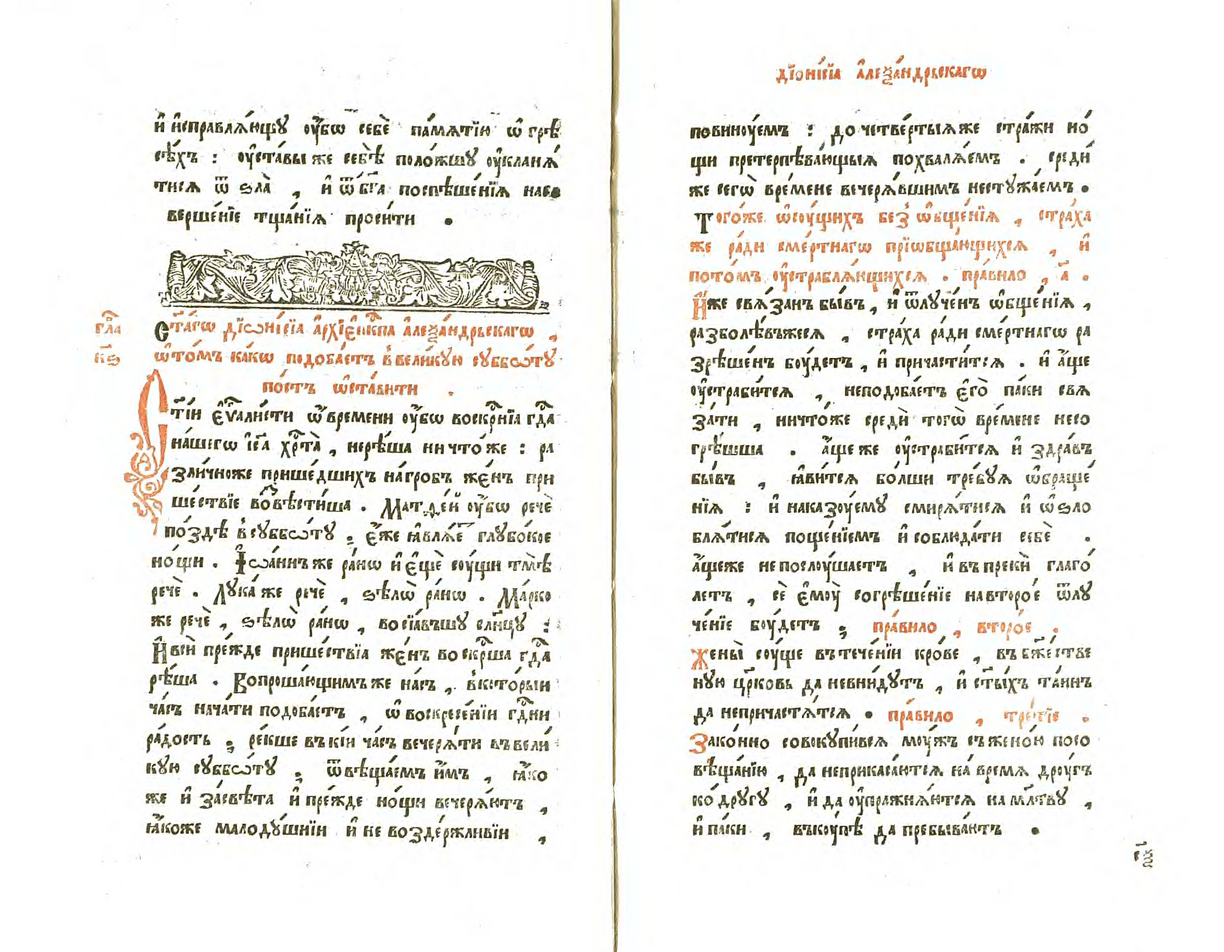 и҆ и҆справлѧ́ющꙋ ᲂу҆́бѡ себѐ па́мѧтїю ѡ҆ грѣ
сѣ́хъ : ᲂу҆ста́вы же себѣ̀ поло́жшꙋ ᲂу҆клан́ѧ
тисѧ ѿ ѕла̀ , и҆ ѿ бг҃а поспѣше́нїѧ насо
верше́нїе тща́нїѧ проси́ти .
гла
к҃ѕ
Ст҃а́гѡ дїѡни́сїа а҆рхїе҆п҃кпа а҆леѯа́ндрьскагѡ ,
ѡ҆то́мъ ка́кѡ подоба́етъ ввели́кую сꙋббѡ́тꙋ
по́стъ ѡ҆ста́вити .
Ст҃і́и є҆ѵⷢ҇али́сти ѡ҆вре́мени ᲂу҆́бѡ воскрⷭ҇нїа гдⷭ҇а
на́шегѡ і҆с҃а хрⷭ҇та̀ , нерѣ́ша ничто́же : ра
зли́чноже прише́дшихъ нагро́бъ же́нъ при
ше́ствїе возвѣсти́ша . Матѳе́й ᲂу҆́бѡ речѐ
по́здѣ всꙋббѡ́тꙋ ; є҆́же ꙗ҆влѧ́етъ глꙋбо́кое
но́щи . І҆ѡа́ннъ же ра́нѡ и҆ є҆щѐ сꙋ́щи тмѣ̀
речѐ . Лꙋка́ же речѐ , ѕѣлѡ̀ ра́нѡ . Ма́рко
же речѐ , ѕѣлѡ̀ ра́нѡ , восїа́вшꙋ сл҃нцꙋ :
И҆ вси́ пре́жде прише́ствїа же́нъ воскр҃ша гдⷭ҇а
рѣ́ша . Вопроша́ющимъ же на́съ , вкото́рыи
ча́съ нача́ти подоба́етъ , ѡ҆ воскресе́нїи гдⷭ҇ни
ра́дость ; ре́кше въкі́и ча́съ вечерѧ́ти въвели́
кую сꙋббѡ́тꙋ ; ѿвѣща́емъ и҆̀мъ , ꙗ҆́ко
же и҆ засвѣ́та и҆ пре́жде но́щи вечерѧ́ютъ ,
ꙗ҆́коже малодꙋ́шнїи и҆ не возде́ржливїи ,
дїони́сїа а҆леѯа́ндрьскагѡ
повинꙋ́емъ : до четве́ртыѧже стра́жи но́
щи претерпѣва́ющыѧ похвалѧ́емъ . среди́
же сегѡ̀ вре́мене вечерѧ́вшимъ нестꙋжа́емъ .
Тогоже ѡ҆сꙋ́щихъ без̾ ѡ҆бще́нїѧ , стра́ха
же ра́ди сме́ртнагѡ прїѡбща́ющихсѧ , и҆
пото́мъ ᲂу҆страблѧ́ющихсѧ . пра́вило , а҃ .
И҆́же свѧ́занъ бы́въ , и҆ ѿлꙋче́нъ ѡ҆бще́нїѧ ,
разболѣ́въжесѧ , стра́ха ради сме́ртнагѡ ра
зрѣше́нъ бꙋ́детъ , и҆ причасти́тсѧ . и҆ а҆́ще
ᲂу҆стра́битсѧ , неподоба́етъ є҆го̀ па́ки свѧ
за́ти , ничто́же средѝ тогѡ̀ вре́мене несо
грѣ́шша . а҆́ще же ᲂу҆стра́битсѧ и҆ здра́въ
бы́въ , ꙗ҆ви́тсѧ бо́лши тре́бꙋѧ ѡ҆браще́
нїѧ : и҆ наказꙋ́емꙋ смирѧ́тисѧ и҆ ѡ҆ѕло
блѧ́тисѧ поще́нїемъ и҆ соблюда́ти себѐ .
а҆́щеже не послꙋ́шаетъ , и҆ въпреки́ глаго́
летъ , сѐ є҆мꙋ̀ согрѣше́нїе навторо́е ѿлꙋ
че́нїе бꙋ́детъ ; пра́вило , второ́е .
Жены̀ сꙋ́ще въ тече́нїи кро́ве , въ бж҃е́стве
нꙋю цр҃ковь да невни́дꙋтъ , и҆ ст҃ы́хъ та́инъ
да непричастѧ́тсѧ . пра́вило , тре́тїе .
Зако́нно совокꙋпи́всѧ мꙋ́жъ съ жено́ю посо
вѣща́нїю , да неприкаса́ютсѧ на вре́мѧ дрꙋ́гъ
ко́ дрꙋгꙋ , и҆ да ᲂу҆пражнѧ́ютсѧ на мл҃твꙋ ,
и҆ па́ки , въкꙋ́пѣ да пребыва́ютъ .